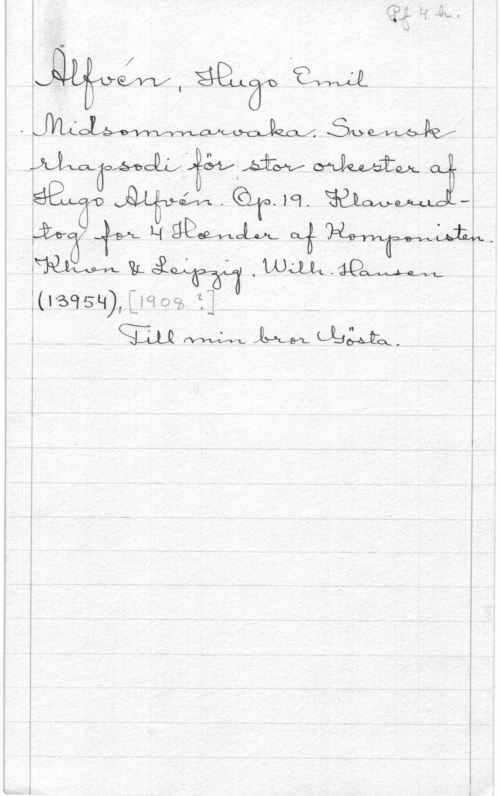 Pf 4 h.
Alfvén, Hugo Emil
Midsommarvaka. Svensk
rhapsodi för stor orkester af
Hugo Alfvén. Op. 19. Klaverud-
tog for 4 Hænder af Komponisten.
Khvn & Leipzig. Wilh. Hansen
(13954), [1908 ?]
Till min bror Gösta.